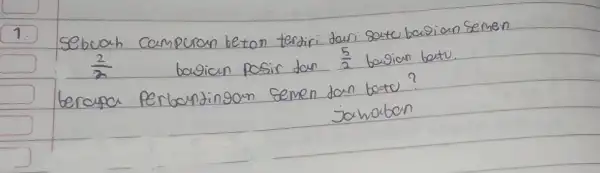 1. Sebuah campuran beton terdiri dari satu bagian semen
2/2 bagian pasir dan 5/2 bagian batu.
berapa perbandingan semen dan batu?
jawaban